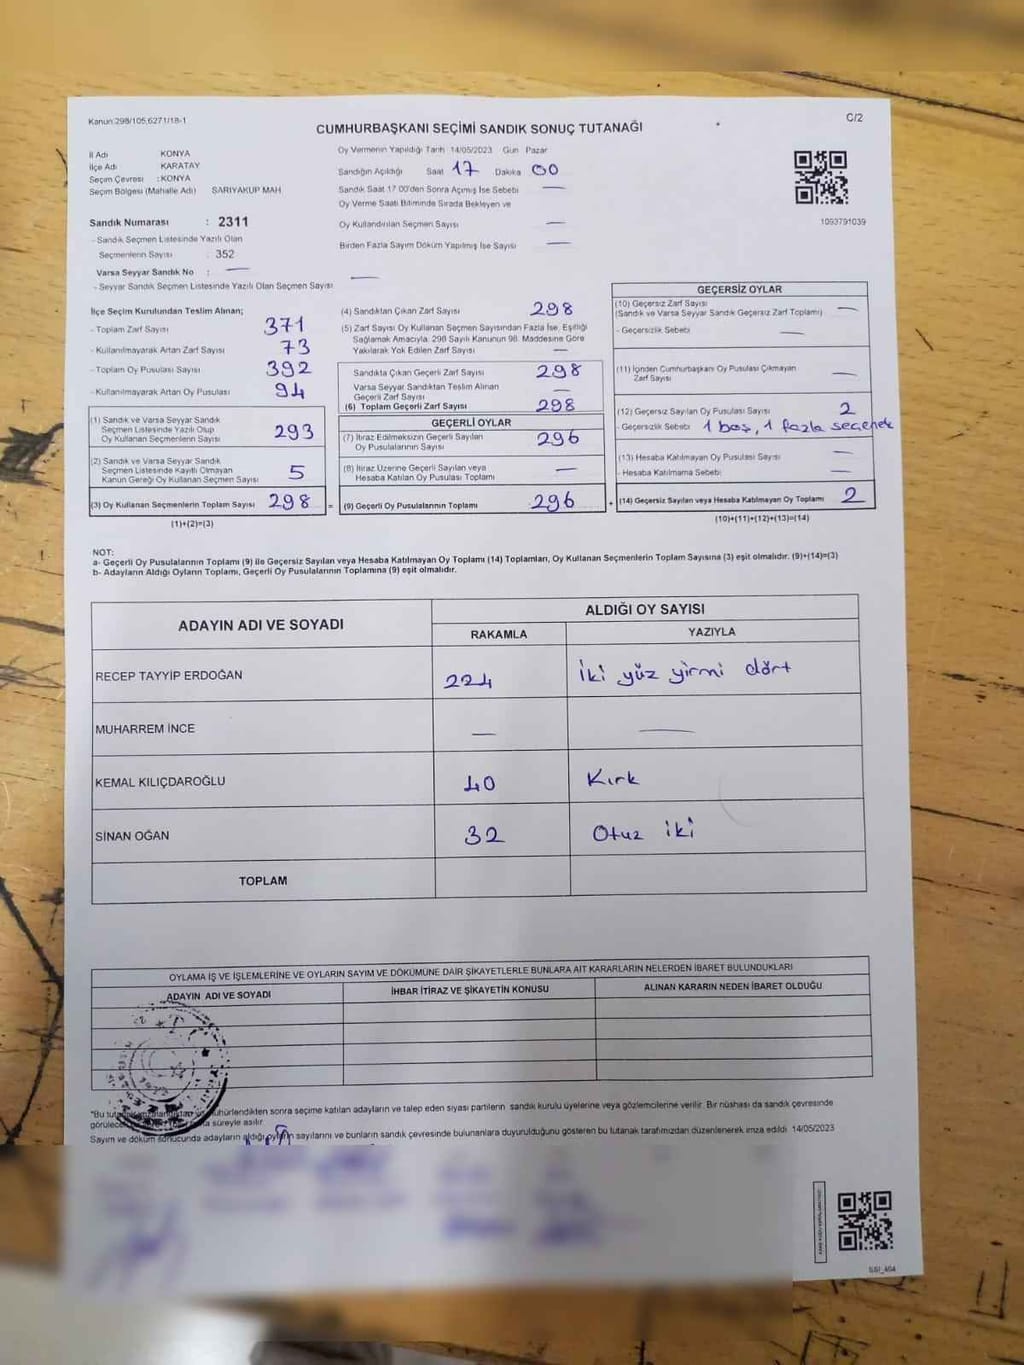 Kanun:298/105,6271/18-1
C/2
CUMHURBAŞKANI SEÇİMİ SANDIK SONUÇ TUTANAĞI
İl Adı KONYA
İlçe Adı KARATAY
Seçim Çevresi : KONYA
Seçim Bölgesi (Mahalle Adı) SARIYAKUP MAH
Sandık Numarası : 2311
- Sandık Seçmen Listesinde Yazılı Olan
Seçmenlerin Sayısı : 352
Varsa Seyyar Sandık No : —
- Seyyar Sandık Seçmen Listesinde Yazılı Olan Seçmen Sayısı —
Oy Vermenin Yapıldığı Tarih 14/05/2023 Gün Pazar
Sandığın Açıldığı Saat 17 Dakika 00
Sandık Saat 17 00'den Sonra Açılmış İse Sebebi —
Oy Verme Saati Bitiminde Sırada Bekleyen ve
Oy Kullandırılan Seçmen Sayısı —
Birden Fazla Sayım Döküm Yapılmış İse Sayısı —
1093791039
İlçe Seçim Kurulundan Teslim Alınan;
- Toplam Zarf Sayısı 371
- Kullanılmayarak Artan Zarf Sayısı 73
- Toplam Oy Pusulası Sayısı 392
- Kullanılmayarak Artan Oy Pusulası 94
(1) Sandık ve Varsa Seyyar Sandık
Seçmen Listesinde Yazılı Olup
Oy Kullanan Seçmenlerin Sayısı 293
(2) Sandık ve Varsa Seyyar Sandık
Seçmen Listesinde Kayıtlı Olmayan
Kanun Gereği Oy Kullanan Seçmen Sayısı 5
(3) Oy Kullanan Seçmenlerin Toplam Sayısı 298 =
(1)+(2)=(3)
(4) Sandıktan Çıkan Zarf Sayısı 298
(5) Zarf Sayısı Oy Kullanan Seçmen Sayısından Fazla İse, Eşitliği
Sağlamak Amacıyla, 298 Sayılı Kanunun 98. Maddesine Göre
Yakılarak Yok Edilen Zarf Sayısı —
Sandıkta Çıkan Geçerli Zarf Sayısı 298
Varsa Seyyar Sandıktan Teslim Alınan
Geçerli Zarf Sayısı —
(6) Toplam Geçerli Zarf Sayısı 298
GEÇERLİ OYLAR
(7) İtiraz Edilmeksizin Geçerli Sayılan
Oy Pusulalarının Sayısı 296
(8) İtiraz Üzerine Geçerli Sayılan veya
Hesaba Katılan Oy Pusulası Toplamı —
(9) Geçerli Oy Pusulalarının Toplamı 296 +
GEÇERSİZ OYLAR
(10) Geçersiz Zarf Sayısı
(Sandık ve Varsa Seyyar Sandık Geçersiz Zarf Toplamı) —
- Geçersizlik Sebebi —
(11) İçinden Cumhurbaşkanı Oy Pusulası Çıkmayan
Zarf Sayısı —
(12) Geçersiz Sayılan Oy Pusulası Sayısı 2
- Geçersizlik Sebebi 1 boş, 1 fazla seçenek
(13) Hesaba Katılmayan Oy Pusulası Sayısı —
- Hesaba Katılmama Sebebi —
(14) Geçersiz Sayılan veya Hesaba Katılmayan Oy Toplamı 2
(10)+(11)+(12)+(13)=(14)
NOT:
a- Geçerli Oy Pusulalarının Toplamı (9) ile Geçersiz Sayılan veya Hesaba Katılmayan Oy Toplamı (14) Toplamları, Oy Kullanan Seçmenlerin Toplam Sayısına (3) eşit olmalıdır. (9)+(14)=(3)
b- Adayların Aldığı Oyların Toplamı, Geçerli Oy Pusulalarının Toplamına (9) eşit olmalıdır.
ADAYIN ADI VE SOYADI
ALDIĞI OY SAYISI
RAKAMLA YAZIYLA
RECEP TAYYİP ERDOĞAN 224 İki yüz yirmi dört
MUHARREM İNCE — —
KEMAL KILIÇDAROĞLU 40 Kırk
SİNAN OĞAN 32 Otuz iki
TOPLAM
OYLAMA İŞ VE İŞLEMLERİNE VE OYLARIN SAYIM VE DÖKÜMÜNE DAİR ŞİKAYETLERLE BUNLARA AİT KARARLARIN NELERDEN İBARET BULUNDUKLARI
ADAYIN ADI VE SOYADI İHBAR İTİRAZ VE ŞİKAYETİN KONUSU ALINAN KARARIN NEDEN İBARET OLDUĞU
"Bu sonra seçime katılan adayların ve talep eden siyasi partilerin sandık kurulu üyelerine veya gözlemcilerine verilir. Bir nüshası da sandık çevresinde
süreyle asılır
Sayım ve döküm sonucunda adayların aldığı oyların sayılarını ve bunların sandık çevresinde bulunanlara duyurulduğunu gösteren bu tutanak tarafımızdan düzenlenerek imza edildi 14/05/2023